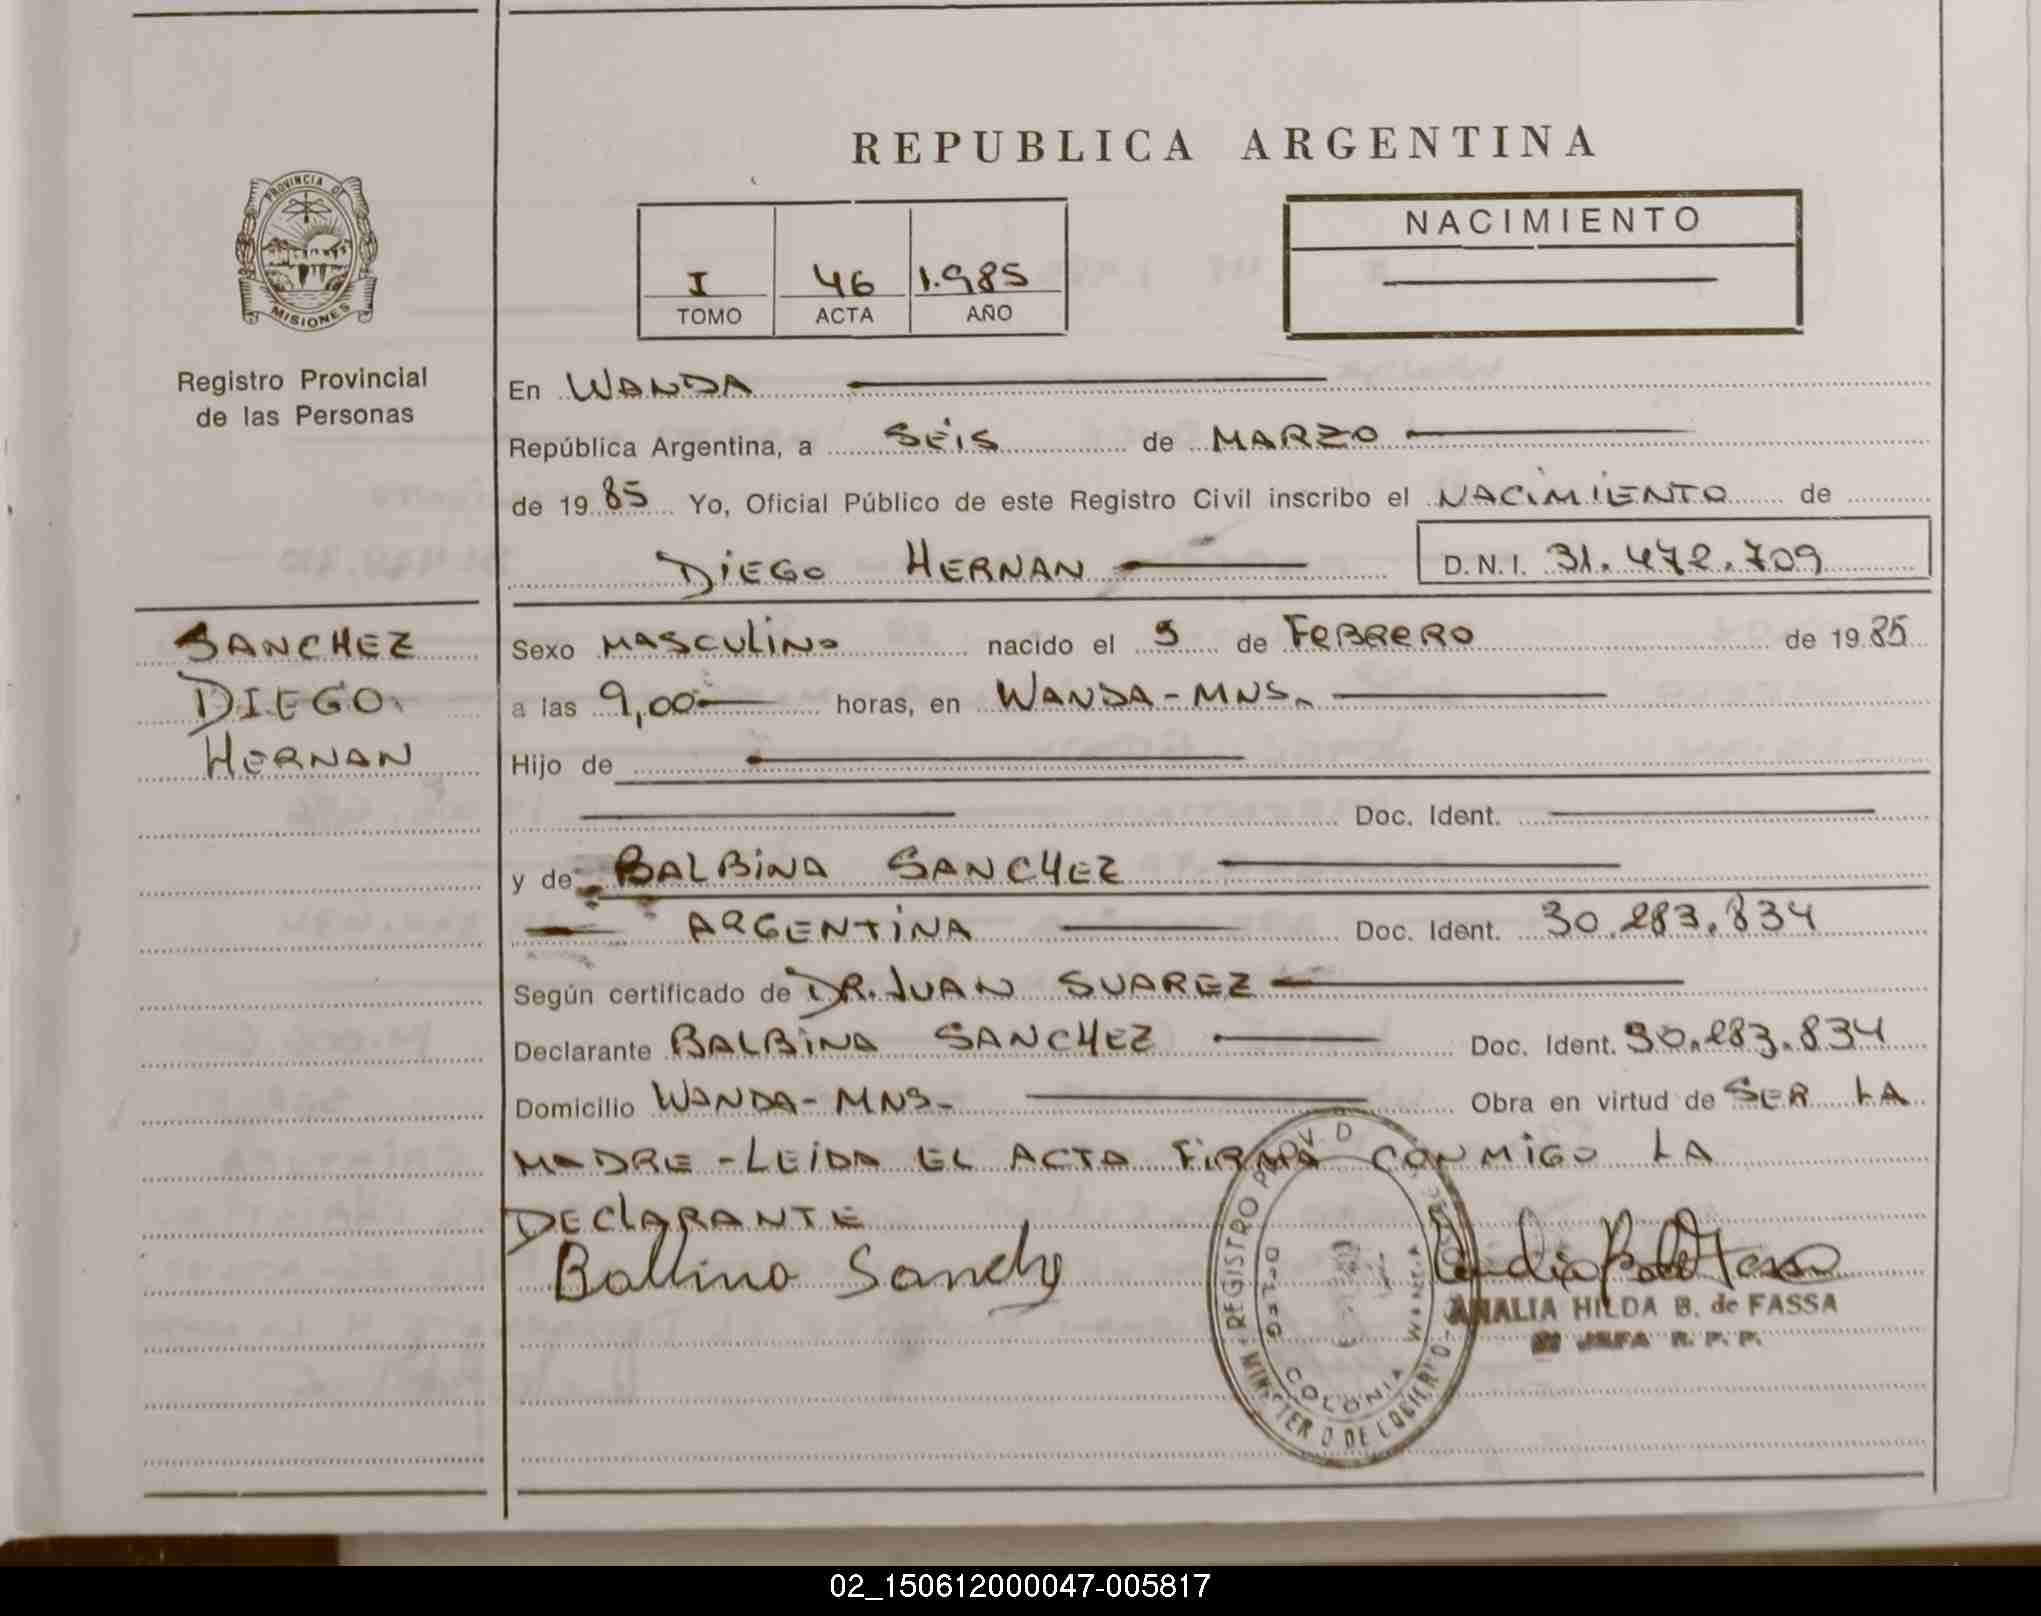 REPUBLICA ARGENTINA
PROVINCIA DE
MISIONES
Registro Provincial
de las Personas
I 46 1.985
TOMO ACTA AÑO
NACIMIENTO
En WANDA
República Argentina, a SEIS de MARZO
de 19 85 Yo, Oficial Público de este Registro Civil inscribo el NACIMIENTO de
DIEGO HERNAN D.N.I. 31.472.709
SANCHEZ
DIEGO
HERNAN
Sexo MASCULINO nacido el 5 de FEBRERO de 19 85
a las 9,00 horas, en WANDA-MNS.
Hijo de
Doc. Ident.
y de BALBINA SANCHEZ
ARGENTINA Doc. Ident. 30.283.834
Según certificado de DR. JUAN SUAREZ
Declarante BALBINA SANCHEZ Doc. Ident. 30.283.834
Domicilio WANDA-MNS- Obra en virtud de SER LA
MADRE-LEIDA EL ACTA FIRMA CONMIGO LA
DECLARANTE
Balbina Sanchez
ANALIA HILDA B. de FASSA
JEFA R. P. P.
REGISTRO PROV. D
MINISTERIO DE GOBIERNO
COLONIA WANDA
02_150612000047-005817